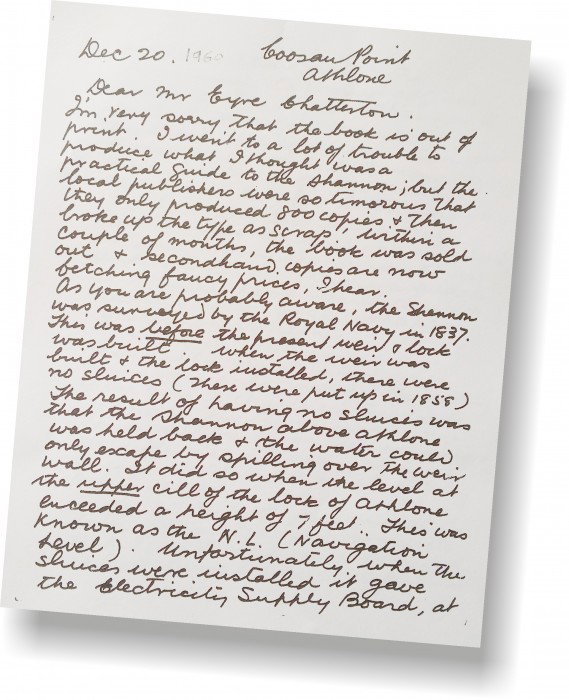 Dec 20. 1960 Coosan Point
Athlone
Dear Mr Eyre Chatterton.
I'm very sorry that the book is out of
print. I went to a lot of trouble to
produce what I thought was a
practical Guide to the Shannon; but the
local publishers were so timorous that
they only produced 800 copies & then
broke up the type as scrap! Within a
couple of months, the book was sold
out & secondhand copies are now
fetching fancy prices, I hear.
As you are probably aware, the Shannon
was surveyed by the Royal Navy in 1837.
This was before the present weir & lock
was built. When the weir was
built & the lock installed, there were
no sluices (these were put up in 1858)
The result of having no sluices was
that the Shannon above Athlone
was held back & the water could
only escape by spilling over the weir
wall. It did so when the level at
the upper cill of the lock of Athlone
exceeded a height of 7 feet. This was
known as the N.L. (Navigation
Level). Unfortunately when the
sluices were installed it gave
the Electricity Supply Board, at